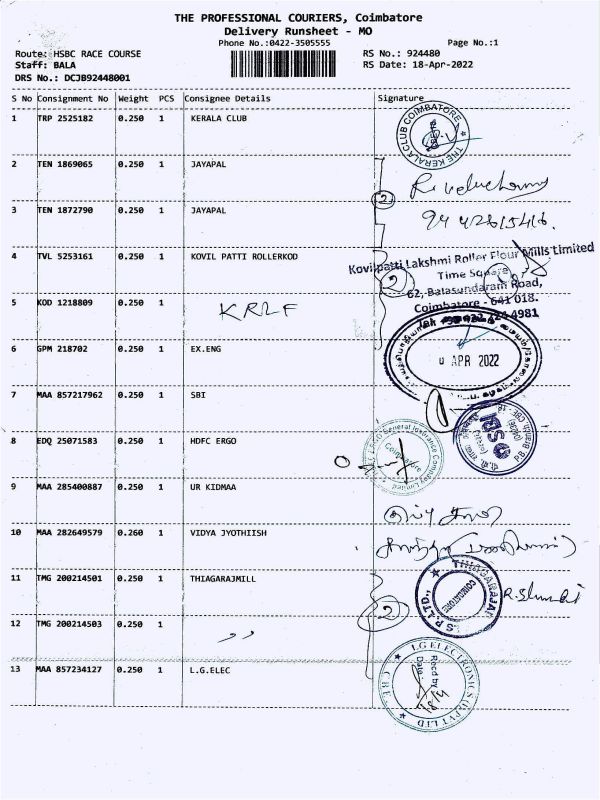 THE PROFESSIONAL COURIERS, Coimbatore
Delivery Runsheet - MO
Phone No.:0422-3505555
Page No.:1
Route: HSBC RACE COURSE
RS No.: 924480
Staff: BALA
RS Date: 18-Apr-2022
DRS No.: DCJB92448001
S No Consignment No Weight PCS Consignee Details Signature
1 TRP 2525182 0.250 1 KERALA CLUB
THE KERALA CLUB COIMBATORE
2 TEN 1869065 0.250 1 JAYAPAL
2
3 TEN 1872790 0.250 1 JAYAPAL
4 TVL 5253161 0.250 1 KOVIL PATTI ROLLERKOD
Kovilpatti Lakshmi Roller Flour Mills Limited
Time Square
62, Balasundaram Road,
Coimbatore - 641 018.
2
5 KOD 1218809 0.250 1 KRLF
4981
6 GPM 218702 0.250 1 EX.ENG
APR 2022
7 MAA 857217962 0.250 1 SBI
SBI
P.B. Branch
8 EDQ 25071583 0.250 1 HDFC ERGO
General Insurance Company Limited
Coimbatore
9 MAA 285400887 0.250 1 UR KIDMAA
10 MAA 282649579 0.260 1 VIDYA JYOTHIISH
11 TMG 200214501 0.250 1 THIAGARAJMILL
THIAGARAJAR
COIMBATORE
2
12 TMG 200214503 0.250 1 ,,
13 MAA 857234127 0.250 1 L.G.ELEC
LG ELECTRONICS (I) PVT LTD
Recd by
Date
CBE